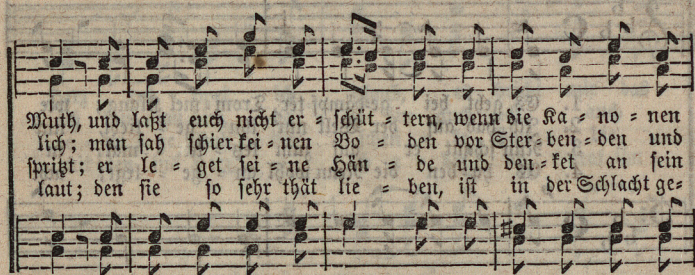 Muth, und laßt euch nicht er - schüt - tern, wenn die Ka - no - nen
lich; man sah schier kei - nen Bo - den vor Ster - ben - den und
spritzt; er le - get sei - ne Hän - de und den - ket an sein
laut; den sie so sehr thät lie - ben, ist in der Schlacht ge-